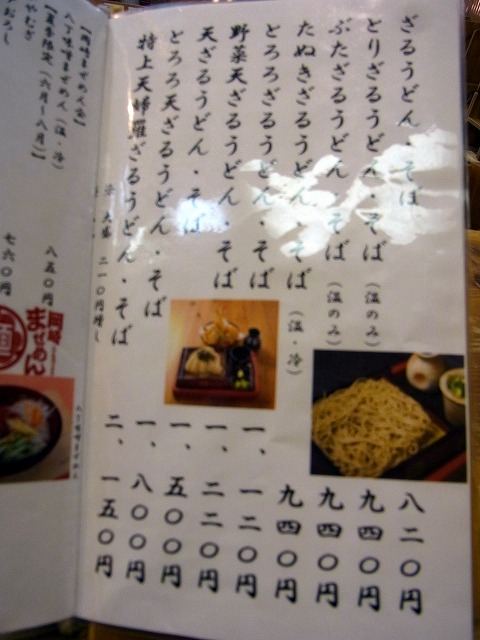 ざるうどん・そば 八二〇円
とりざるうどん・そば(温のみ) 九四〇円
ぶたざるうどん・そば(温のみ) 九四〇円
たぬきざるうどん・そば(温・冷) 九四〇円
とろろざるうどん・そば 一、一二〇円
野菜天ざるうどん・そば 一、二二〇円
天ざるうどん・そば 一、五〇〇円
とろろ天ざるうどん・そば 一、八〇〇円
特上天婦羅ざるうどん・そば 二、一五〇円
大盛 二一〇円増し
八丁味噌まぜめん(温・冷) 八五〇円
【夏季限定(六月〜八月)】
七六〇円
岡崎
まぜめん